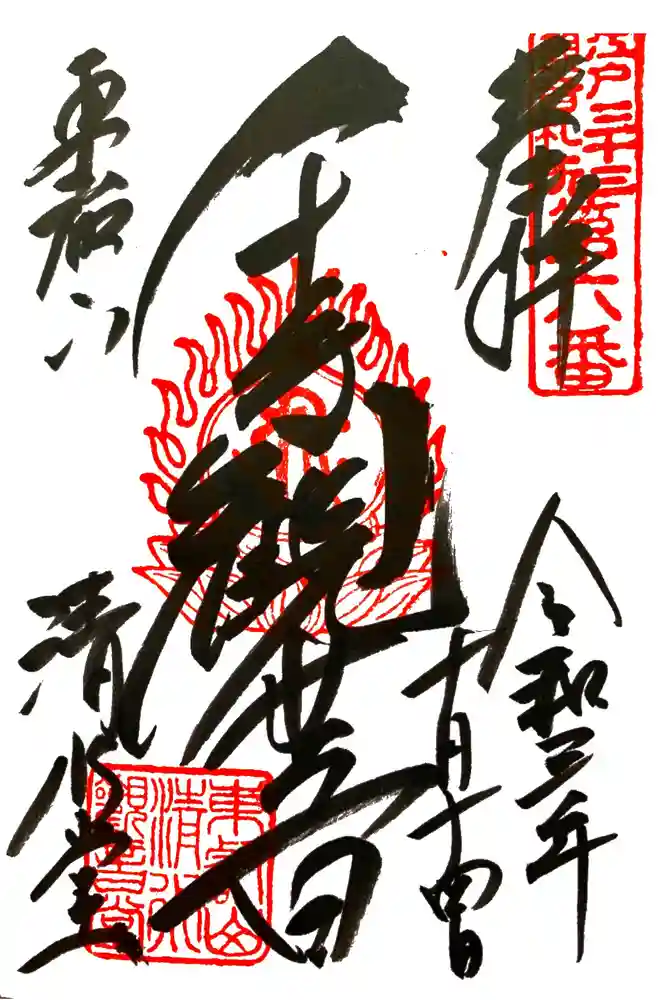 江戸三十三
観音札所
第六番
奉拝
令和三年
十月十四日
千手観世音
東叡山
清水堂
東叡山
清水
觀音堂